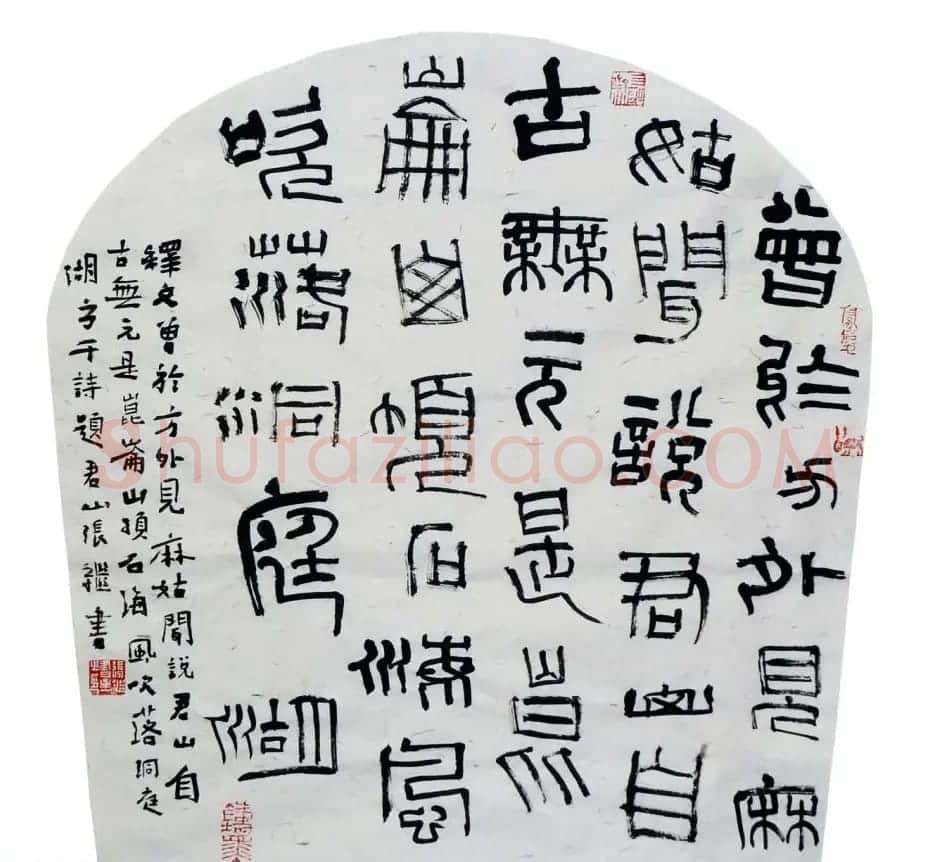 曾於方外見麻
姑聞說君山自
古無元是崑
崙山頂石海風
吹落洞庭湖
釋文曾於方外見麻姑聞說君山自
古無元是崑崙山頂石海風吹落洞庭
湖方干詩題君山張繼書
Shufaziliao.COM